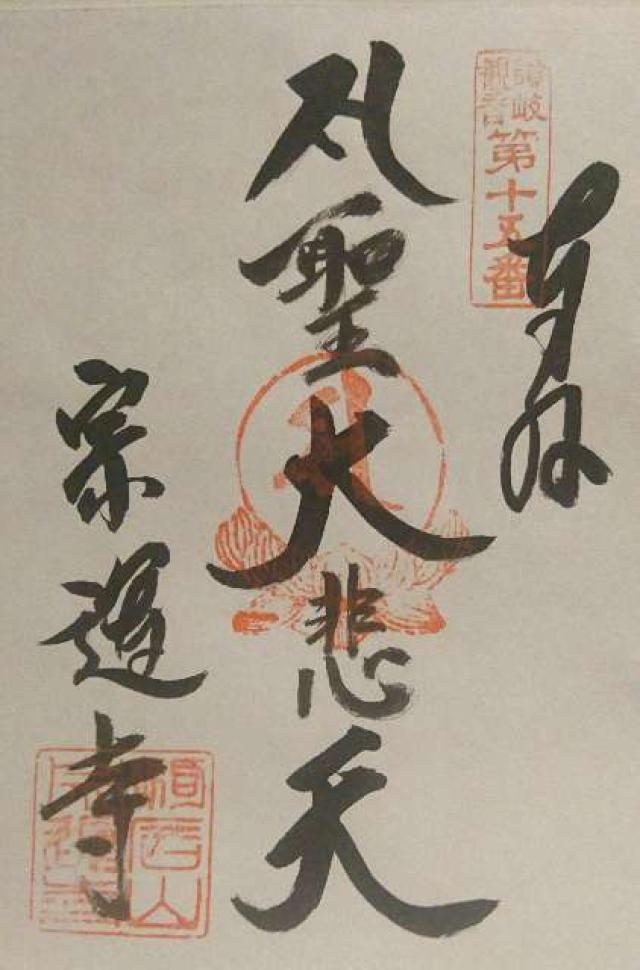 讃岐
観音
第十五番
奉拝
聖大悲天
宗運寺